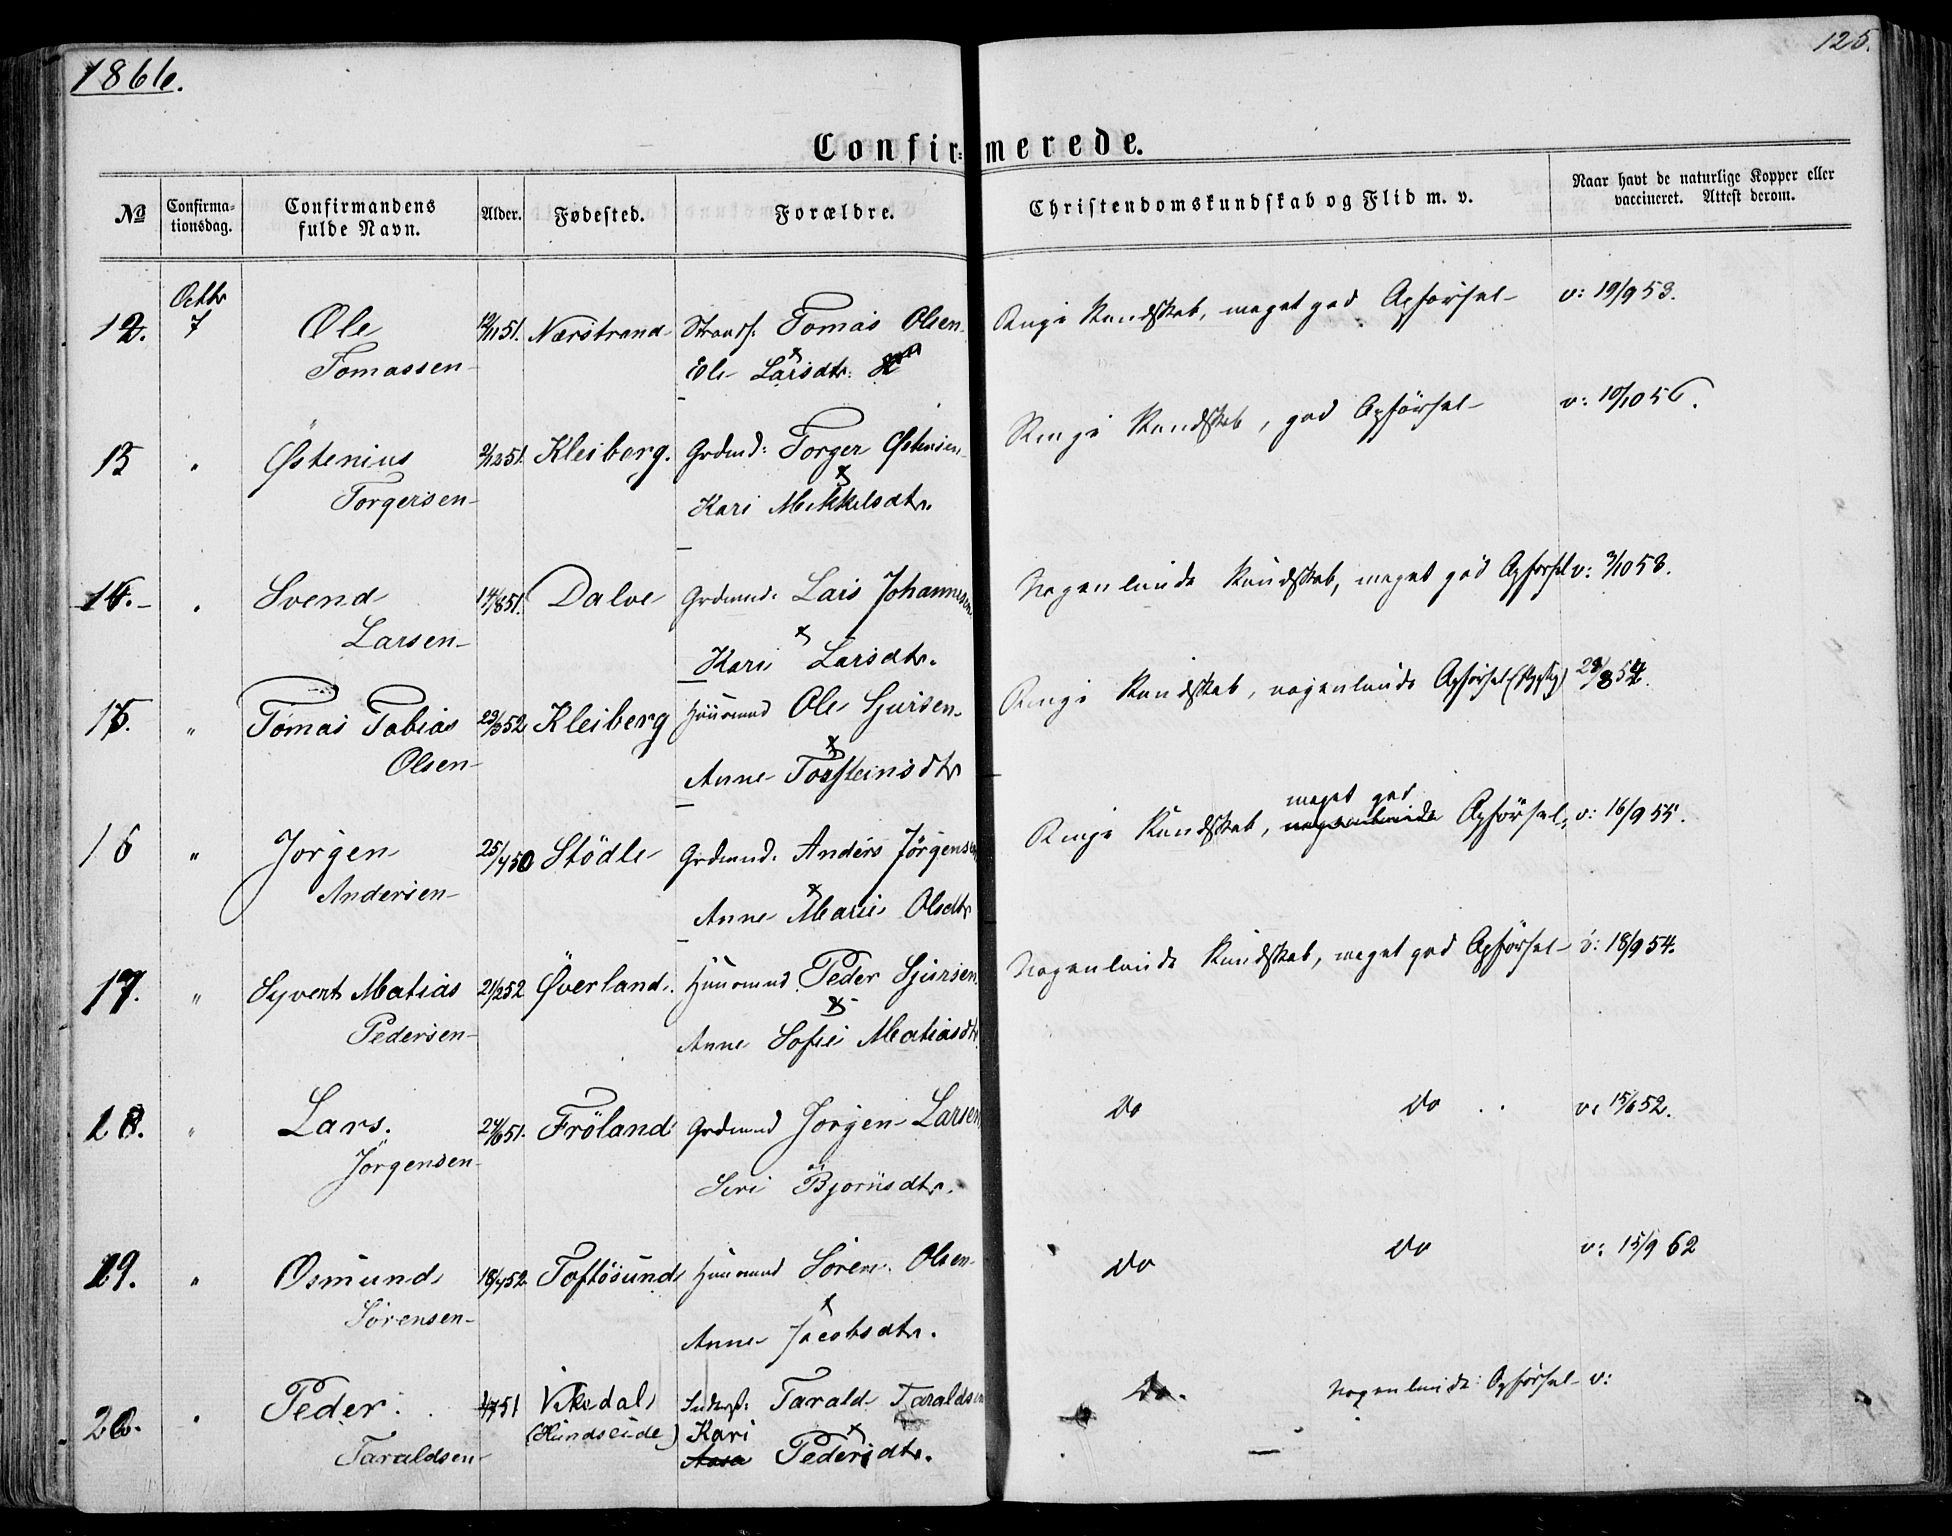 1866.
125.
Confirmerede.
No
Confirmationsdag.
Confirmandens fulde Navn.
Alder.
Fødested.
Forældre.
Christendomskundskab og Flid m. v.
Naar havt de naturlige Kopper eller vaccineret. Attest derom.
Octbr
12. 7 Ole 51. Nærstrand Strands. Tomas Olsen Ringe Kundskab, meget god Opførsel v: 19/9 53.
Tomassen Larsdtr.
13 " Østenius 51. Kleiberg. Grdmd: Torger Østensen Ringe Kundskab, god Opførsel v: 10/10 56.
Torgersen Kari Mikkelsdtr.
" Svend 14/8 51. Dalve Grdmd: Lars Johannesen Nogenlunde Kundskab, meget god Opførsel v: 3/10 53.
Larsen Kari Larsdtr.
15. " Tomas Tobias 52 Kleiberg Huusmd Ole Sjursen Ringe Kundskab, nogenlunde Opførsel 8 54.
Olsen Anne Torsteinsdtr
meget god
16 " Jørgen 25/4 50 Stödle Grdmd. Anders Jørgensen Ringe Kundskab, nogenlunde Opførsel, v: 16/9 55.
Andersen Anne Marie Olsdtr
17. " Syvert Matias 21/2 52 Överland. Huusmd Peder Sjursen Nogenlunde Kundskab, meget god Opførsel v: 18/9 54.
Pedersen Anne Sofie Matiasdtr
18. " Lars. 24/6 51. Fröland Grdmd Jørgen Larsen Do Do v: 15/6 52.
Jørgensen Siri Bjørnsdtr.
19. " Osmund 18/4 52 Toftösund Huusmd Sören Olsen Do Do v: 15/9 62
Sörensen Anne Jacobsdtr.
20. " Peder 51 Vikedal Tarald Taraldsen Do. Nogenlunde Opførsel v:
(Hundseide) Kari
Taraldsen Aasa Pedersdtr.